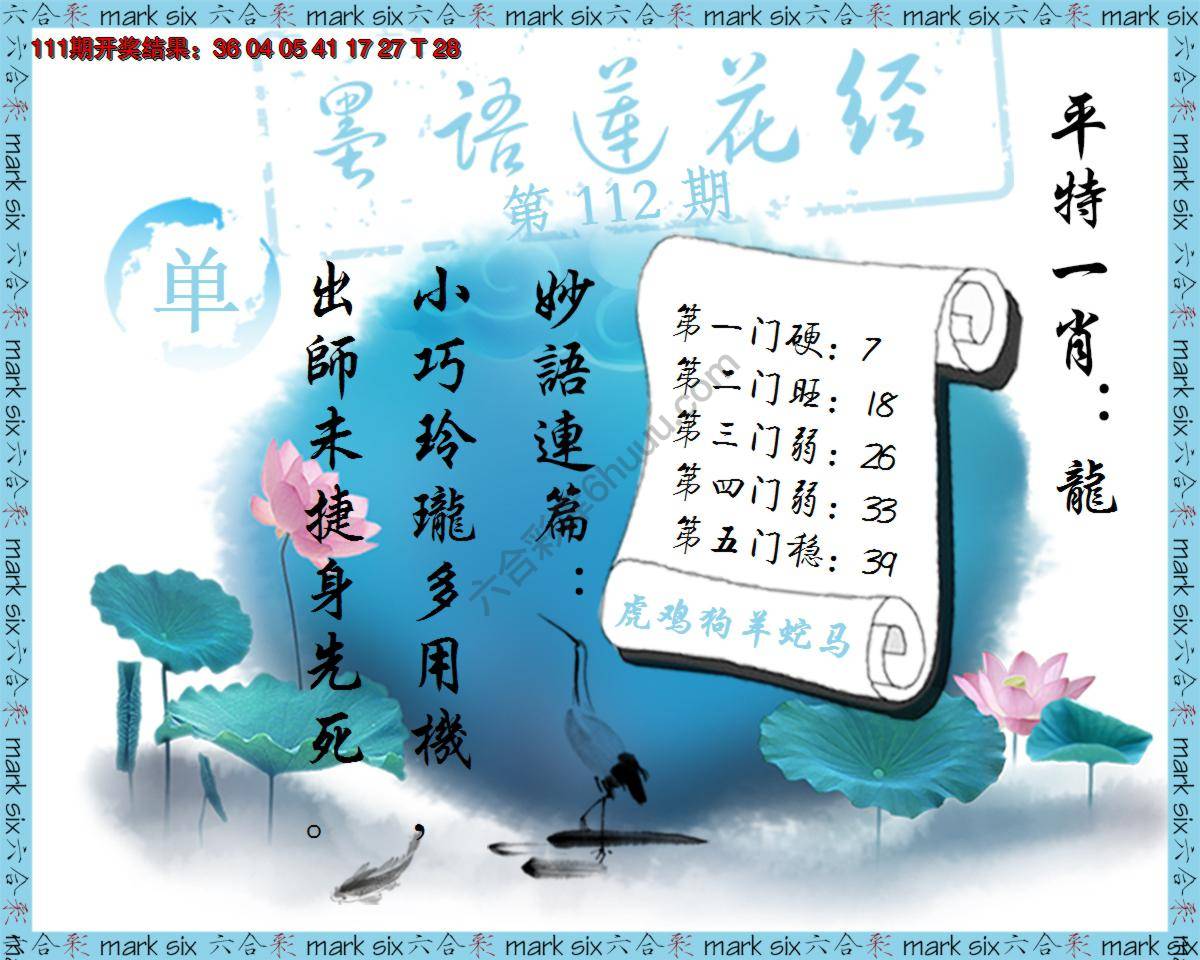 六合彩 mark six 六合彩 mark six 六合彩 mark six 六合彩 mark six 六合彩 mark six 六合彩 mark six
111期开奖结果：36 04 05 41 17 27 T 28
墨語莲花经
第 112 期
平特一肖：龍
单
妙語連篇：
小巧玲瓏多用機，
出師未捷身先死。
第一门硬：7
第二门旺：18
第三门弱：26
第四门弱：33
第五门稳：39
虎鸡狗羊蛇马
六合彩 mark six 六合彩 mark six 六合彩 mark six 六合彩 mark six 六合彩 mark six 六合彩 mark six